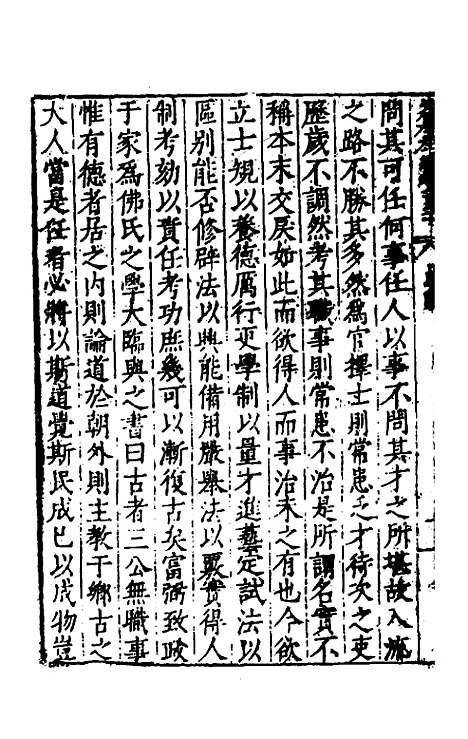 問其可任何事任人以事不問其才之所堪故入流
之路不勝其多然爲官擇士則常患乏才待次之吏
歷歲不調然考其職事則常患不治是所謂名實不
稱本末交戾如此而欲得人而事治未之有也今欲
立士規以養德厲行更學制以量才進藝定試法以
區别能否修辟法以興能備用嚴舉法以覈實得人
制考劾以責任考功庶幾可以漸復古矣富弼致政
于家爲佛氏之學大臨與之書曰古者三公無職事
惟有德者居之内則論道於朝外則主教于鄉古之
大人當是任者必將以斯道覺斯民成已以成物豈